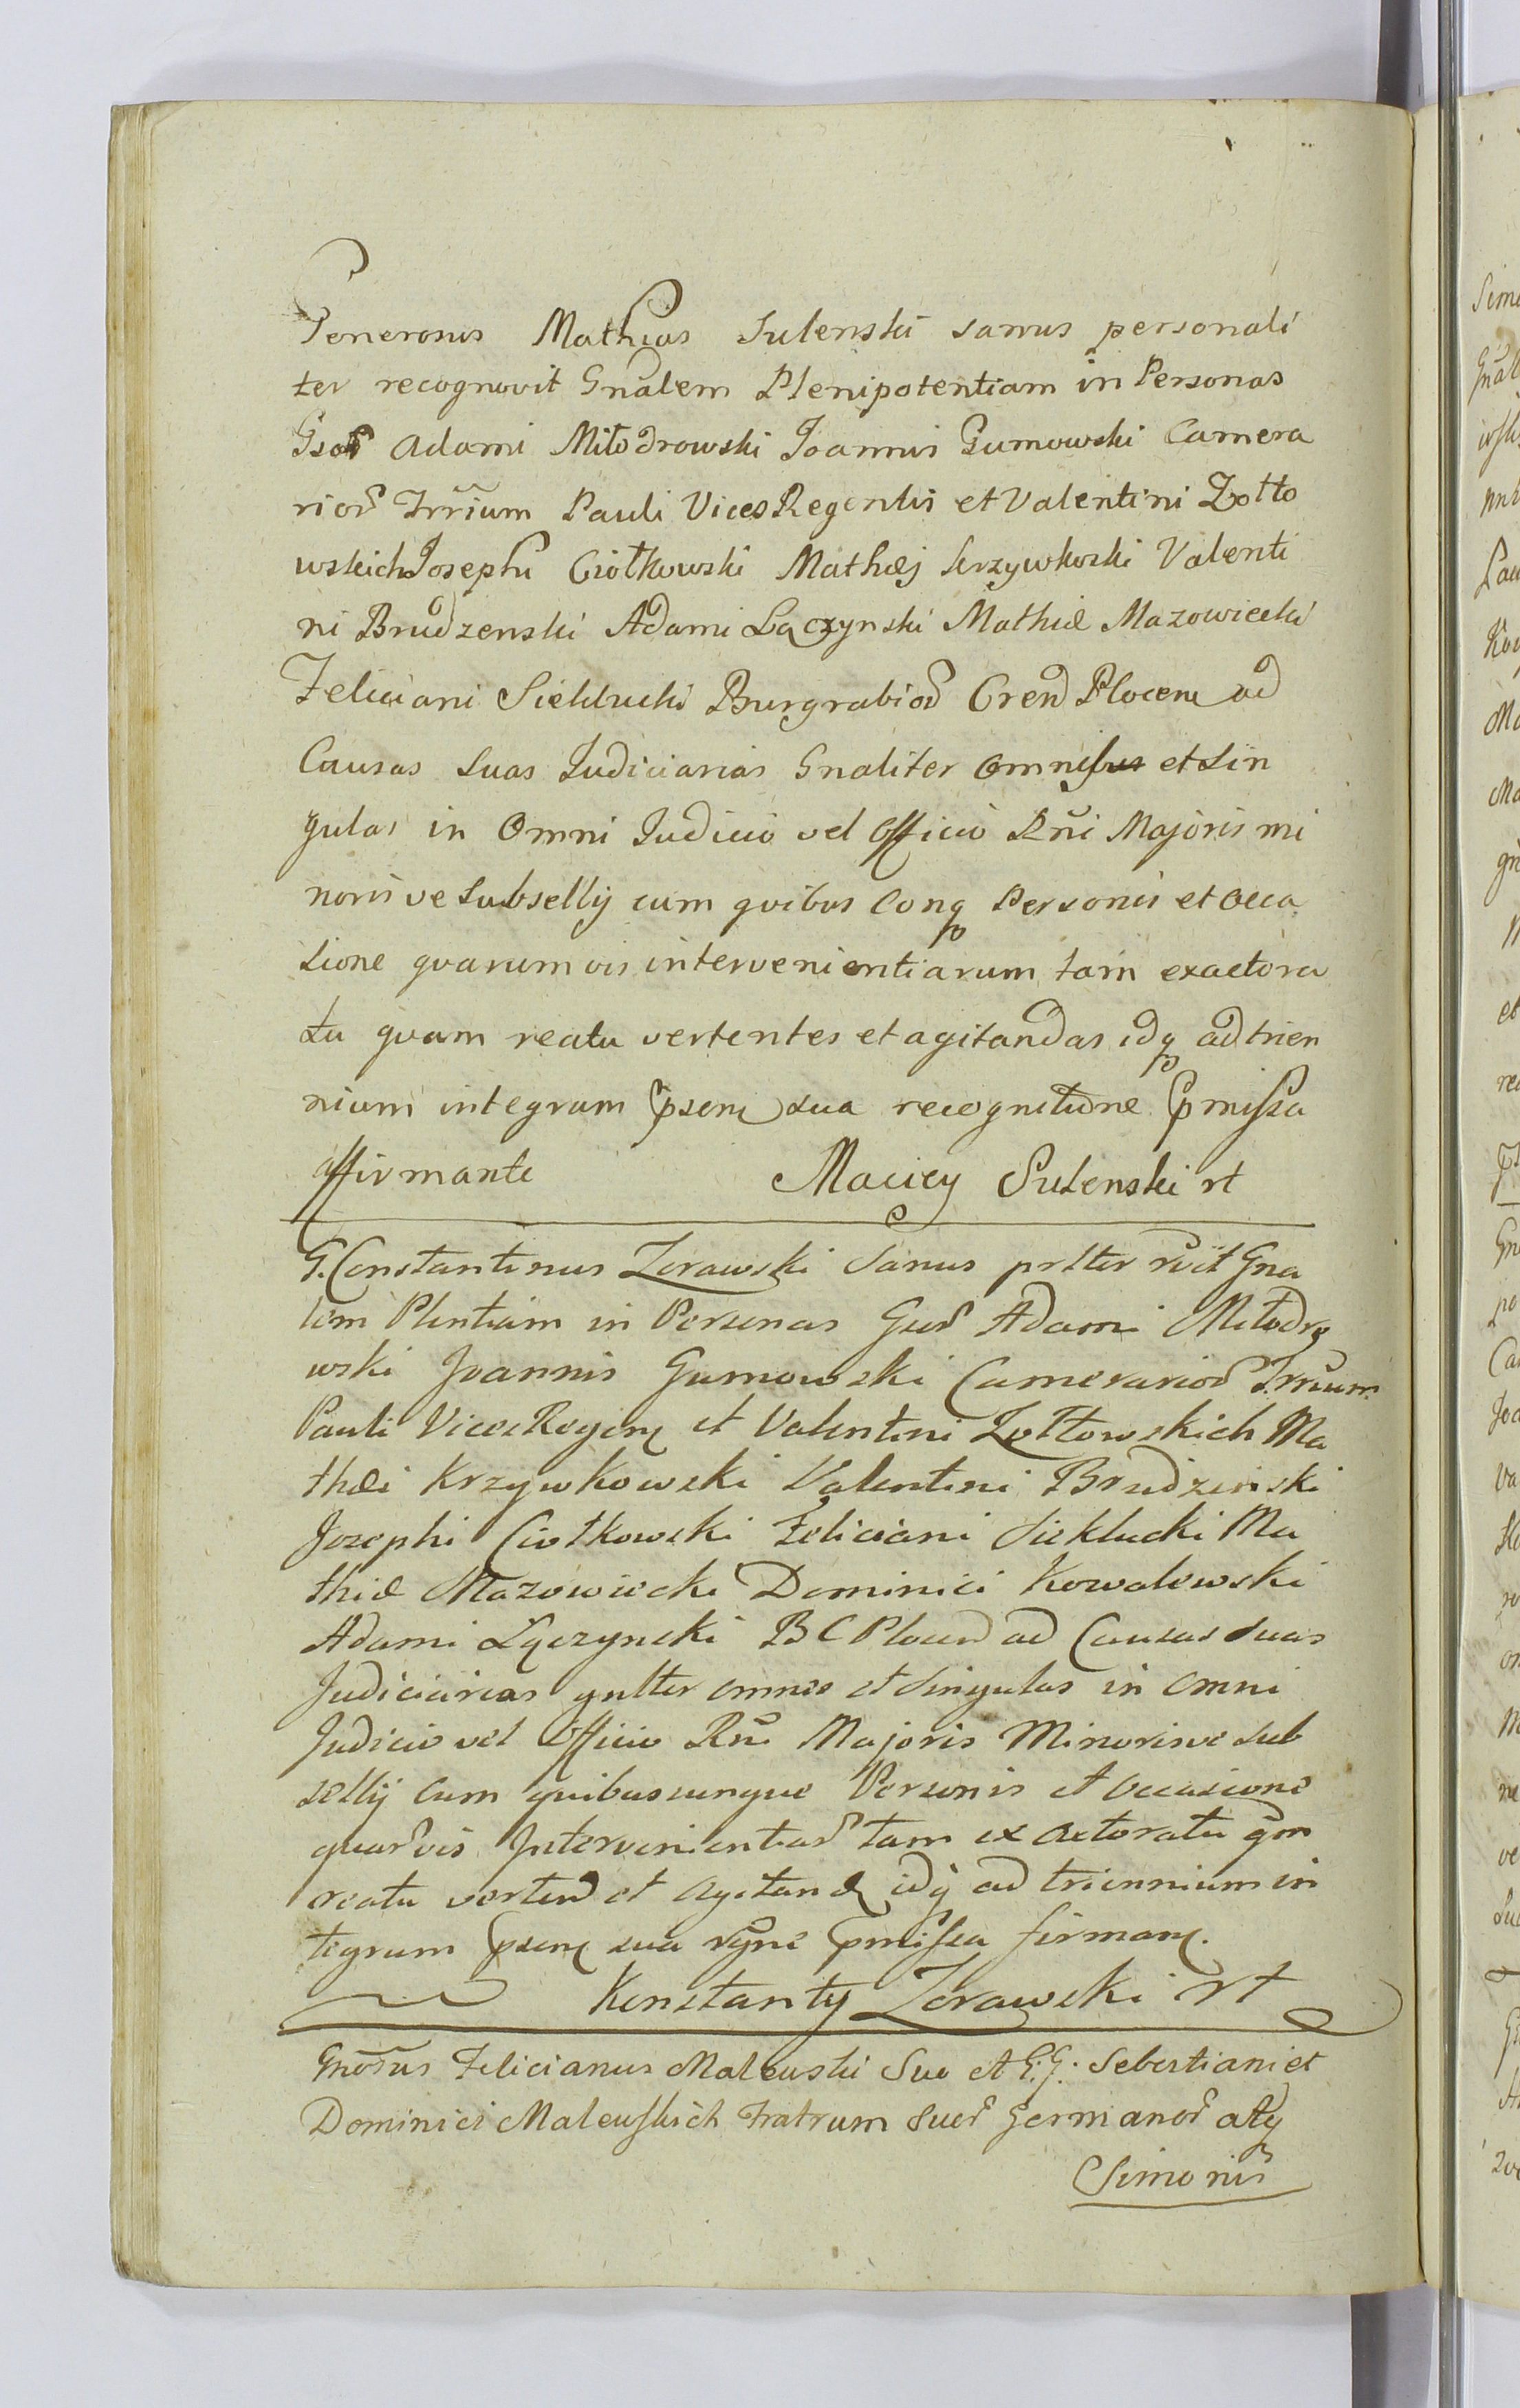 Generosus Mathias Sulenski sanus personali
ter recognovit Gnalem Plenipotentiam in Personas
Gsor Adami Miłodrowski Joannis Gumowski Camera
rior Trrium Pauli Vices Regentis et Valentini Zołto
wskich Josephi Ciołkowski Mathæj Krzywkoski Valenti
ni Brudzenski Adami Łączynski Mathiæ Mazowiecki
Feliciani Sieklucki Burgrabior Cren Plocen ad
Causas Suas Judiciarias Gnaliter omnes et Sin
gulas in Omni Judicio vel Officio Rñi Majoris mi
noris ve Subsellij cum quibus Conq Personis et Occa
sione quarumvis intervenientiarum tam exactora
tu quam reatu vertentes et agitandas idq ad trien
nium integrum psen sua recognitione pmissa
affirmante Maciey Sulenski rt
G. Constantinus Zorawski Sanus prlter rvit Gna
lem Plentiam in Personas Gsor Adami Miłodro
wski Joannis Gumowski Camerarior Trrium
Pauli Vices Regen et Valentini Zołtowskich Ma
thæi Krzywkowski Valentini Brudzinski
Josephi Ciołkowski Feliciani Sieklucki Ma
thiæ Mazowiecki Dominici Kowalewski
Adami Łączynski B C Plocen ad Causas Suas
Judiciarias gnlter omnes et Singulas in omni
Judicio vel Officio Rñi Majoris Minorisve Sub
sellij cum quibuscunque Personis et Occasione
quarvis Intervenientiar tam ex Actoratu qm
reatu verten et Agitand idq ad triennium in
tegrum psen sua rgne pmissa firman.
Konstanty Zorawski rt
Gnosus Felicianus Malewski Suo et G.G. Sebestiani et
Dominici Malewskich Fratrum Suor Germanor atq
Simonis